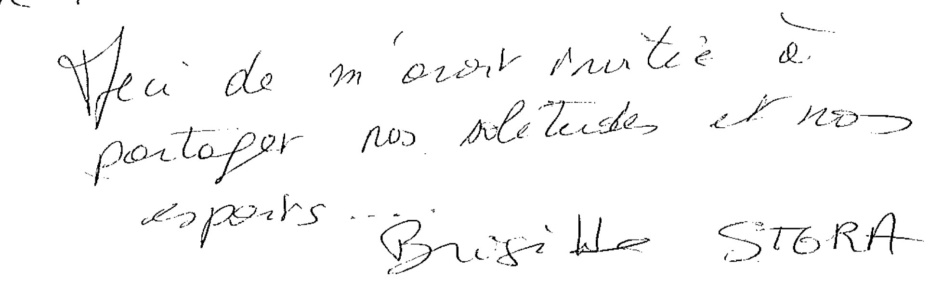 Merci de m'avoir invitée à
partager nos solitudes et nos
espoirs....
Brigitte STORA